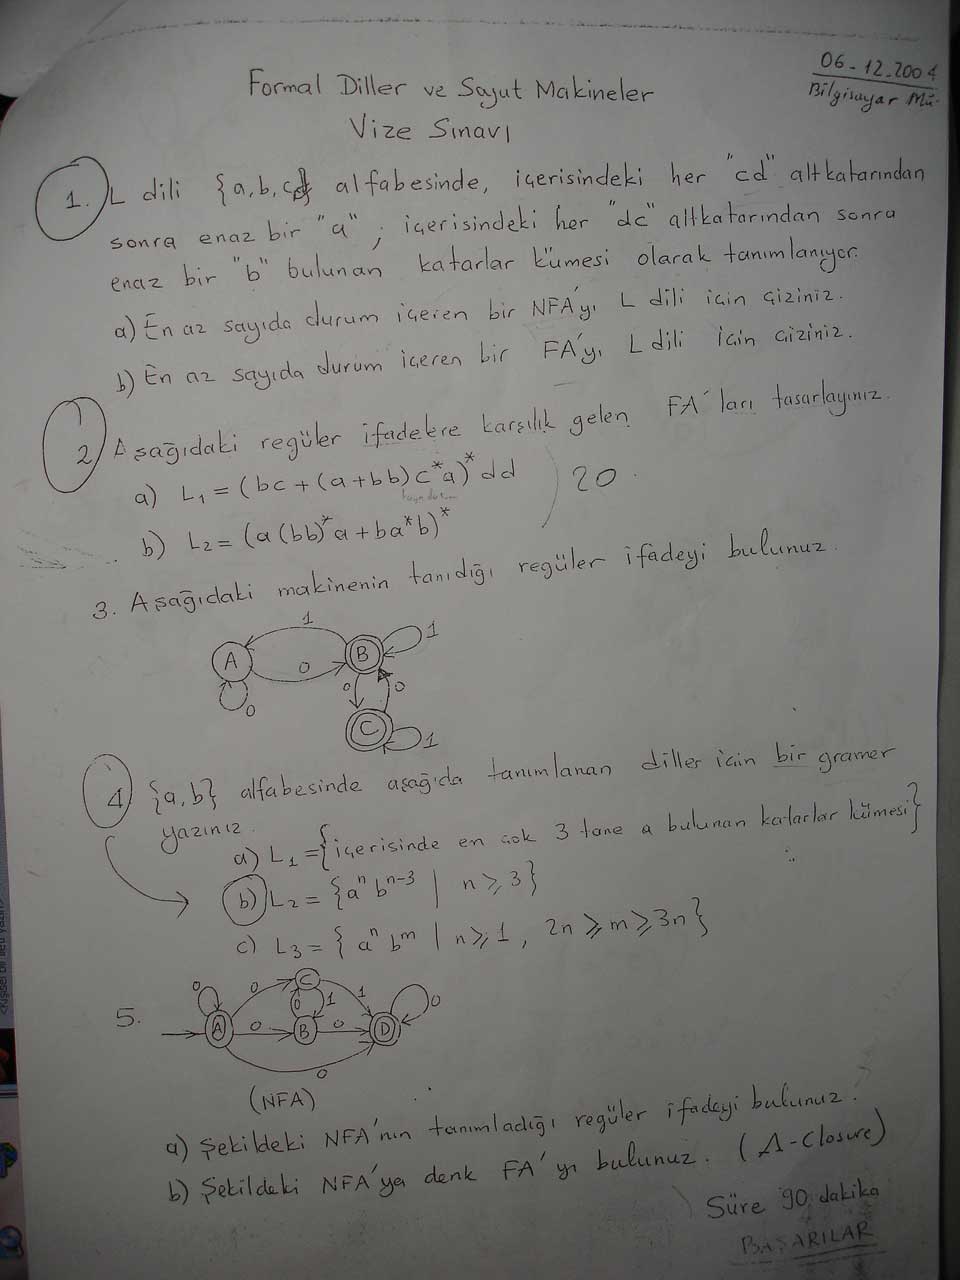 06-12-2004
Bilgisayar Mü.
Formal Diller ve Soyut Makineler
Vize Sınavı
1. L dili {a,b,c,d} alfabesinde, içerisindeki her "cd" altkatarından
sonra enaz bir "a" ; içerisindeki her "dc" altkatarından sonra
enaz bir "b" bulunan katarlar kümesi olarak tanımlanıyor.
a) En az sayıda durum içeren bir NFA'yı L dili için çiziniz.
b) En az sayıda durum içeren bir FA'yı L dili için çiziniz.
2) Aşağıdaki regüler ifadelere karşılık gelen FA'ları tasarlayınız.
a) L₁ = (bc + (a+bb) c*a)* dd
20
b) L₂ = (a (bb)* a + ba*b)*
3. Aşağıdaki makinenin tanıdığı regüler ifadeyi bulunuz.
1
A 0 B 1
0 0 0
C 1
4 {a,b} alfabesinde aşağıda tanımlanan diller için bir gramer
yazınız.
a) L₁ = {içerisinde en çok 3 tane a bulunan katarlar kümesi}
b) L₂ = {aⁿ bⁿ⁻³ | n ≥ 3}
c) L₃ = {aⁿ bᵐ | n ≥ 1, 2n ≥ m ≥ 3n}
5.
0 0 C 1 0
0 1
A 0 B 0 D
0
(NFA)
a) Şekildeki NFA'nın tanımladığı regüler ifadeyi bulunuz.
b) Şekildeki NFA'ya denk FA'yı bulunuz. (Λ-Closure)
Süre 90 dakika
BAŞARILAR